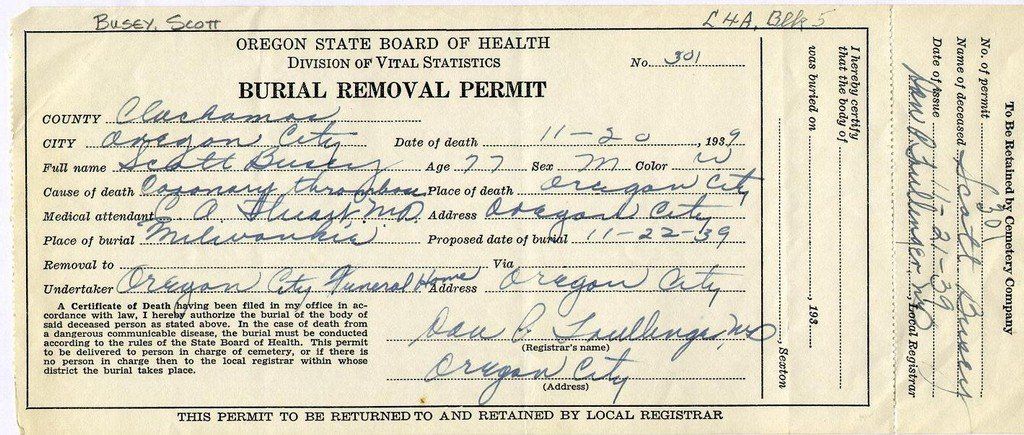 BUSEY, SCOTT L 4A, Blk 5
OREGON STATE BOARD OF HEALTH
DIVISION OF VITAL STATISTICS
No. 301
BURIAL REMOVAL PERMIT
COUNTY Clackamas
CITY Oregon City Date of death 11-20, 1939
Full name Scott Busey Age 77 Sex M Color W
Cause of death Coronary thrombosis Place of death Oregon City
Medical attendant C. A. Stuart MD. Address Oregon City
Place of burial Milwaukie Proposed date of burial 11-22-39
Removal to Via
Undertaker Oregon City Funeral Home Address Oregon City
A Certificate of Death having been filed in my office in ac-
cordance with law, I hereby authorize the burial of the body of
said deceased person as stated above. In the case of death from
a dangerous communicable disease, the burial must be conducted
according to the rules of the State Board of Health. This permit
to be delivered to person in charge of cemetery, or if there is
no person in charge then to the local registrar within whose
district the burial takes place.
(Registrar's name)
Oregon City
(Address)
THIS PERMIT TO BE RETURNED TO AND RETAINED BY LOCAL REGISTRAR
I hereby certify
that the body of
was buried on , 193
, Sexton
To Be Retained by Cemetery Company
No. of permit 301
Name of deceased Scott Busey
Date of issue 11-21-39
, Local Registrar